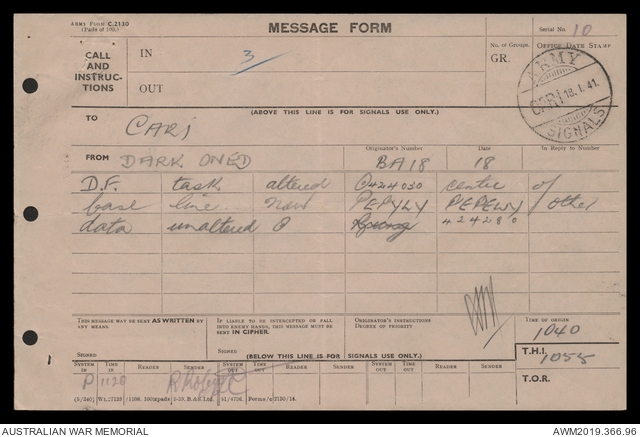 ARMY FORM C.2130
(Pads of 100.)
MESSAGE FORM
Serial No. 10
CALL AND INSTRUC-TIONS
IN
3
No. of Groups.
GR.
OFFICE DATE STAMP
ARMY
CARJ 18.1.41.
SIGNALS
OUT
(ABOVE THIS LINE IS FOR SIGNALS USE ONLY.)
TO
CARJ
FROM
DARK ONED
Originator's Number
BA18
Date
18
In Reply to Number
D.F. task altered 0424030 centre of
base line .. now PEPYLY PEPEWY of other
data unaltered 424280
THIS MESSAGE MAY BE SENT AS WRITTEN BY ANY MEANS.
IF LIABLE TO BE INTERCEPTED OR FALL INTO ENEMY HANDS, THIS MESSAGE MUST BE SENT IN CIPHER.
ORIGINATOR'S INSTRUCTIONS
DEGREE OF PRIORITY
TIME OF ORIGIN
1040
T.H.I.
1055
SIGNED
SIGNED
(BELOW THIS LINE IS FOR SIGNALS USE ONLY.)
SYSTEM IN
TIME IN
READER
SENDER
SYSTEM OUT
TIME OUT
READER
SENDER
SYSTEM OUT
TIME OUT
READER
SENDER
T.O.R.
P 1120
AUSTRALIAN WAR MEMORIAL
AWM2019.366.96